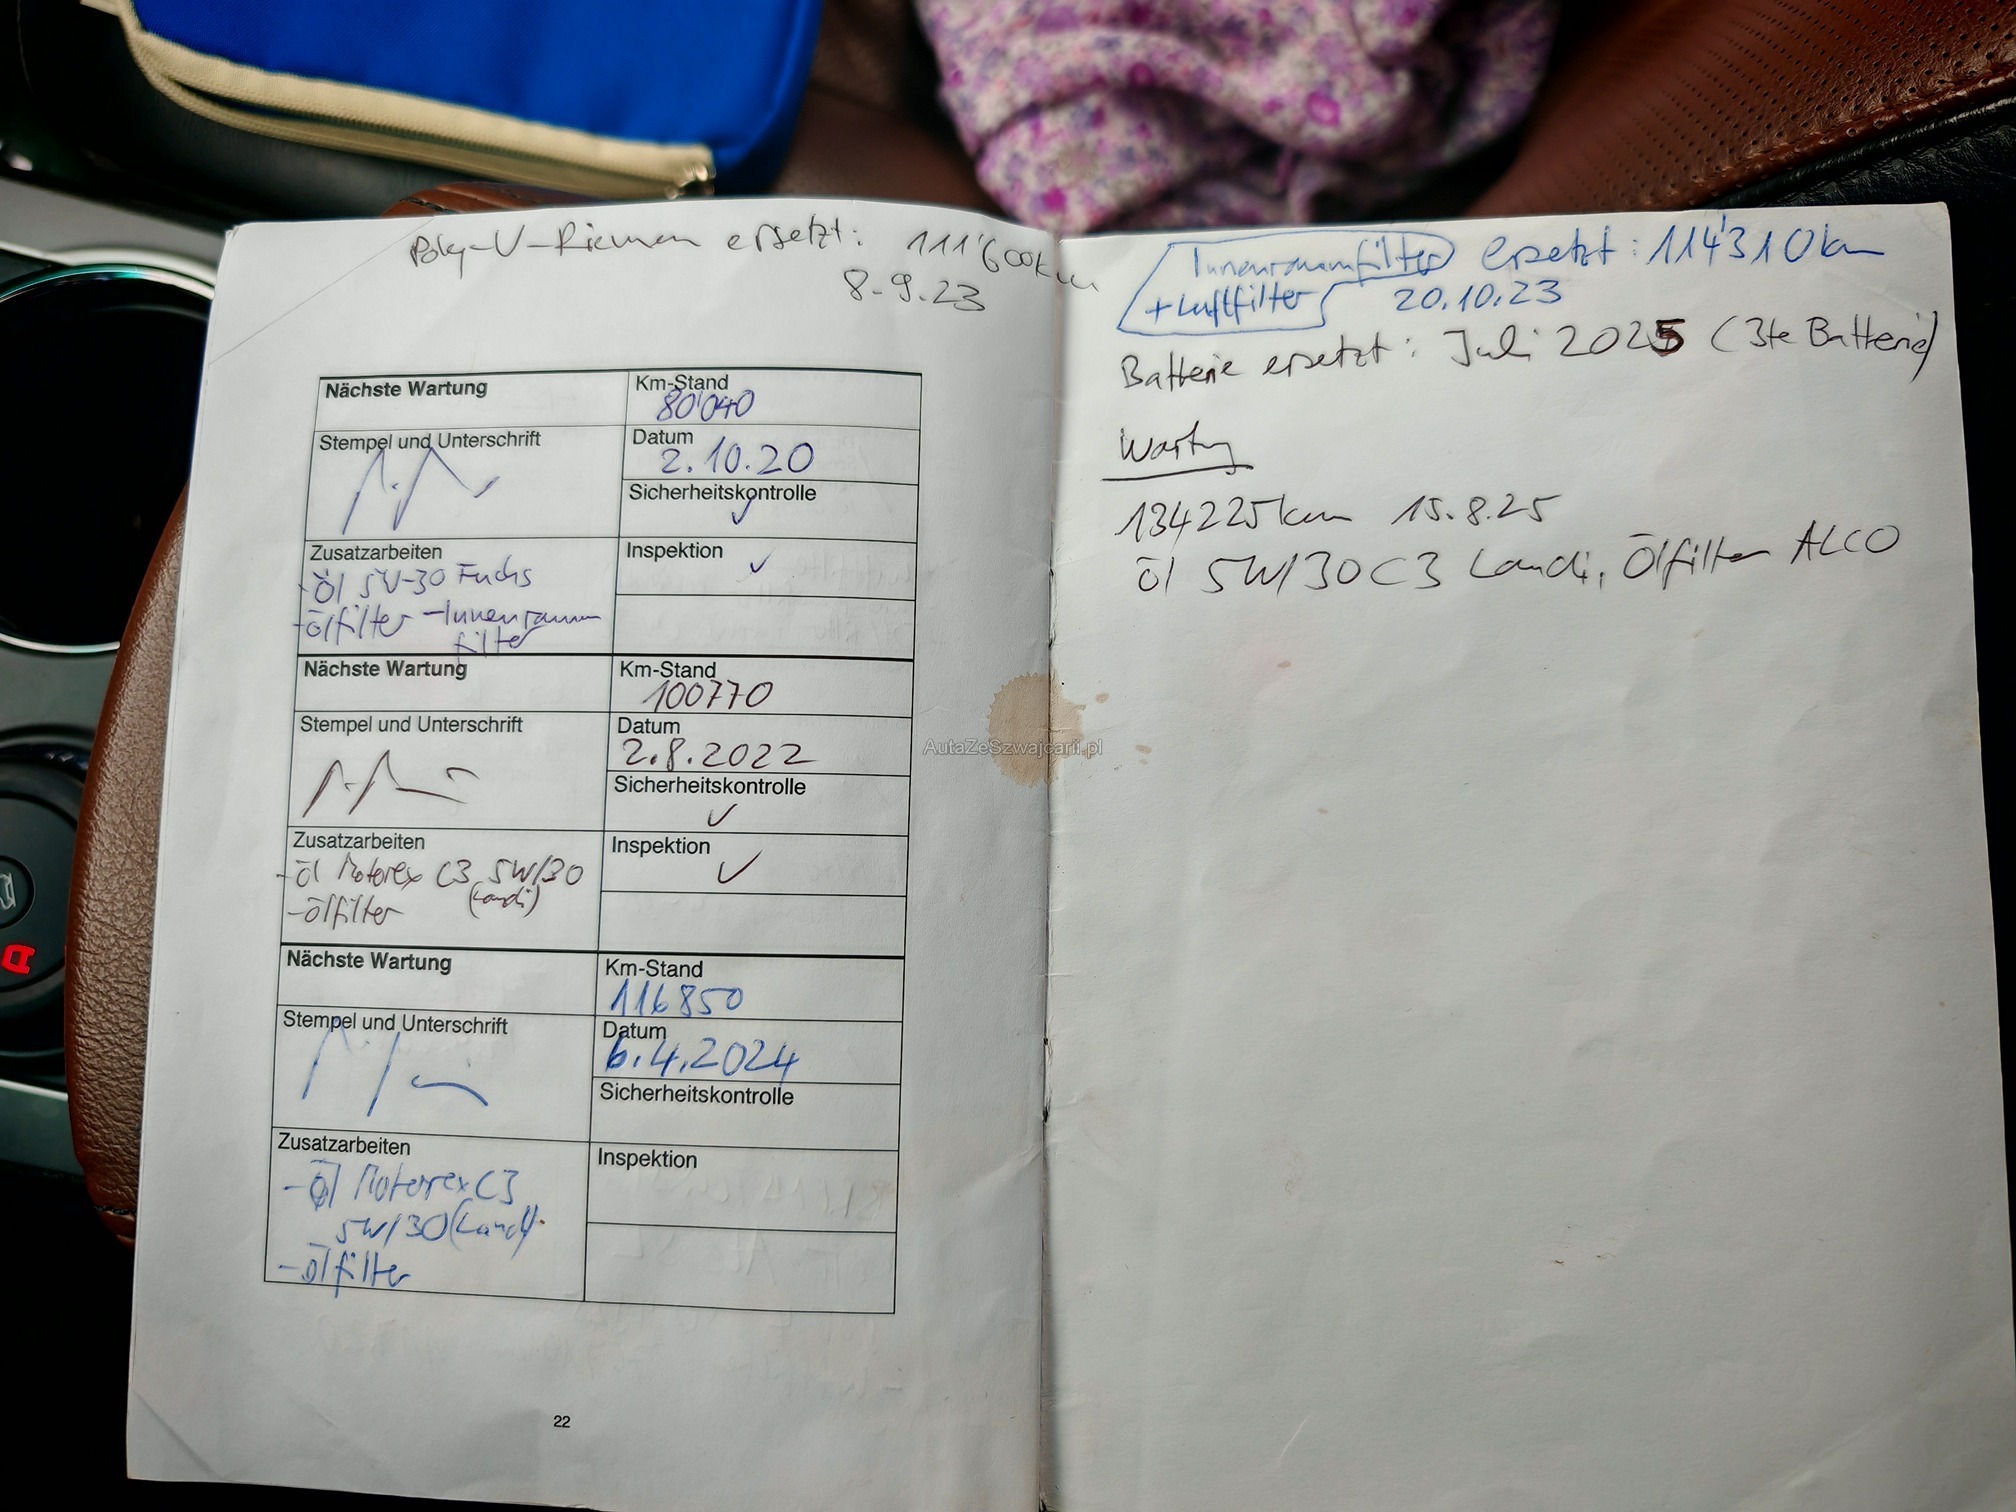 Poly-V-Riemen ersetzt: 111'600km
8.9.23
Nächste Wartung
Km-Stand
80'040
Stempel und Unterschrift
Datum
2.10.20
Sicherheitskontrolle
✓
Zusatzarbeiten
-Öl 5W-30 Fuchs
-Ölfilter -Innenraum
filter
Inspektion
✓
Nächste Wartung
Km-Stand
100770
Stempel und Unterschrift
Datum
2.8.2022
Sicherheitskontrolle
✓
Zusatzarbeiten
-Öl Motorex C3 5W/30
(Landi)
-Ölfilter
Inspektion
✓
Nächste Wartung
Km-Stand
116850
Stempel und Unterschrift
Datum
6.4.2024
Sicherheitskontrolle
Zusatzarbeiten
-Öl Motorex C3
5W/30 (Landi)
-Ölfilter
Inspektion
22
Innenraumfilter ersetzt: 114'310km
+Luftfilter 20.10.23
Batterie ersetzt: Juli 2025 (3te Batterie)
Wartung
134225km 15.8.25
Öl 5W/30 C3 Landi, Ölfilter ALCO
AutaZeSzwajcarii.pl
A